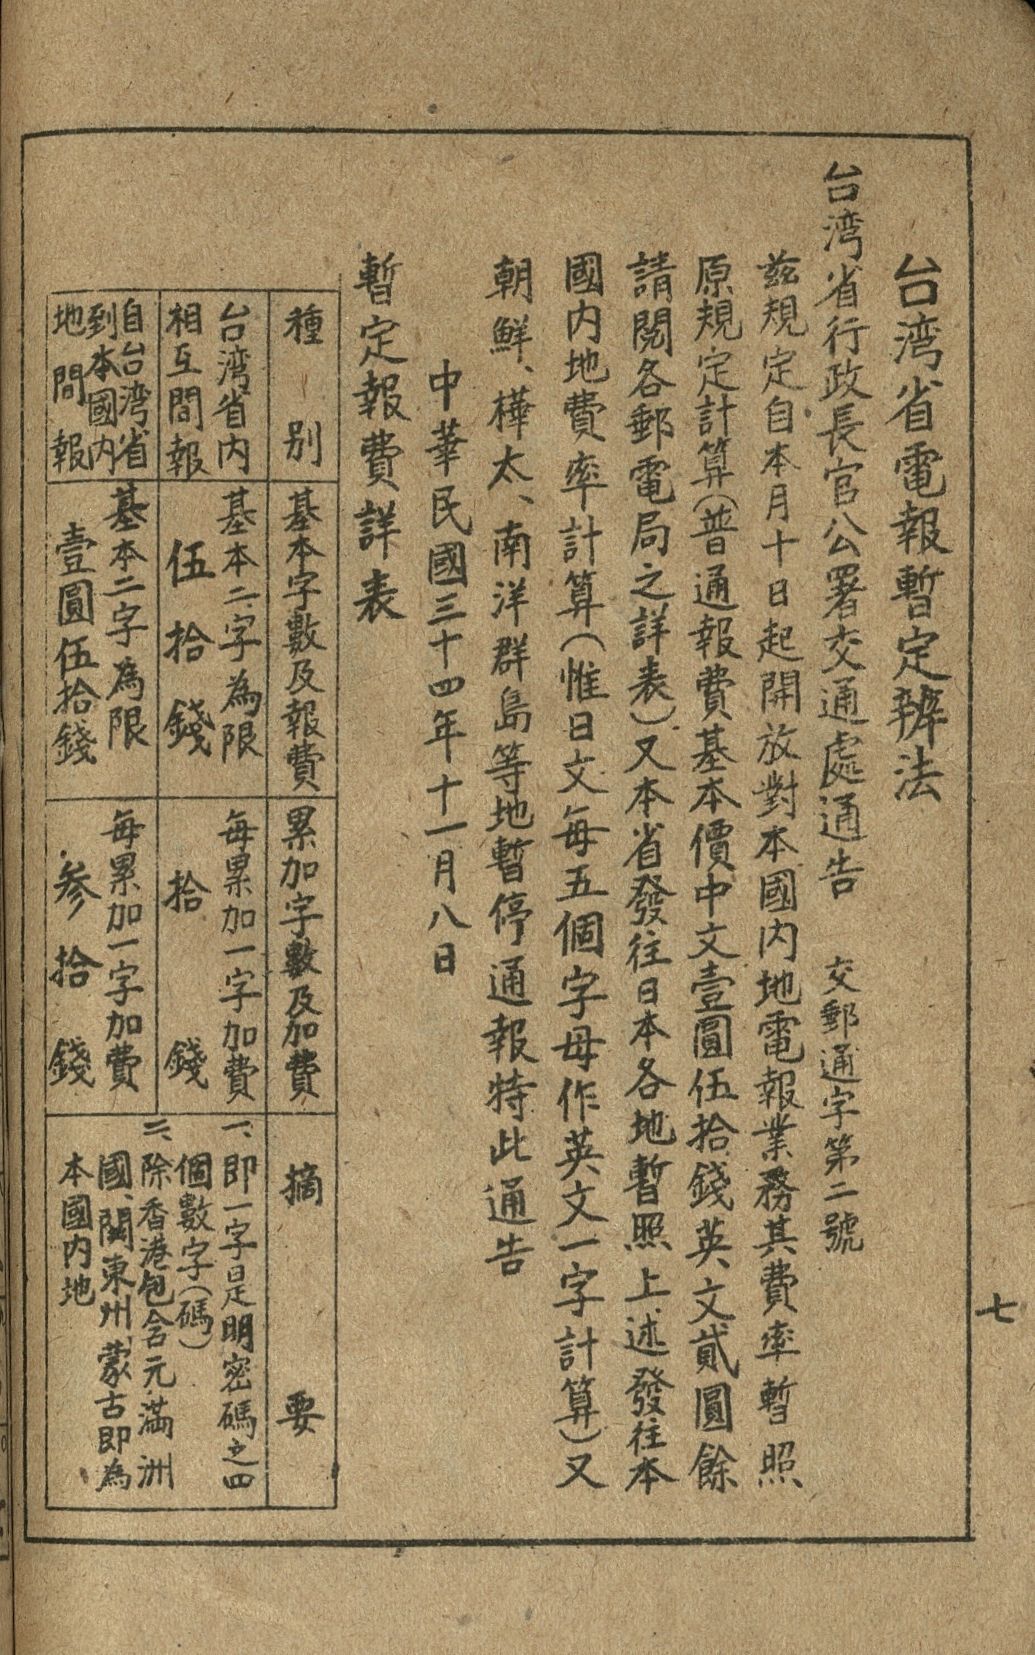 台湾省電報暫定辦法
台湾省行政長官公署交通處通告　交郵通字第二號
兹規定自本月十日起開放對本國内地電報業務其費率暫照
原規定計算(普通報費基本價中文壹圓伍拾錢英文貳圓餘
請閱各郵電局之詳表)又本省發往日本各地暫照上述發往本
國内地費率計算(惟日文每五個字母作英文一字計算)又
朝鮮、樺太、南洋群島等地暫停通報特此通告
中華民國三十四年十一月八日
暫定報費詳表
種別
基本字數及報費
累加字數及加費
摘要
台湾省内
相互間報
基本二字為限
伍拾錢
每累加一字加費
拾錢
一、即一字是明密碼之四
個數字(碼)
二、除香港包含元滿洲
國、関東州蒙古即為
本國内地
自台湾省
到本國内
地間報
基本二字為限
壹圓伍拾錢
每累加一字加費
参拾錢
七